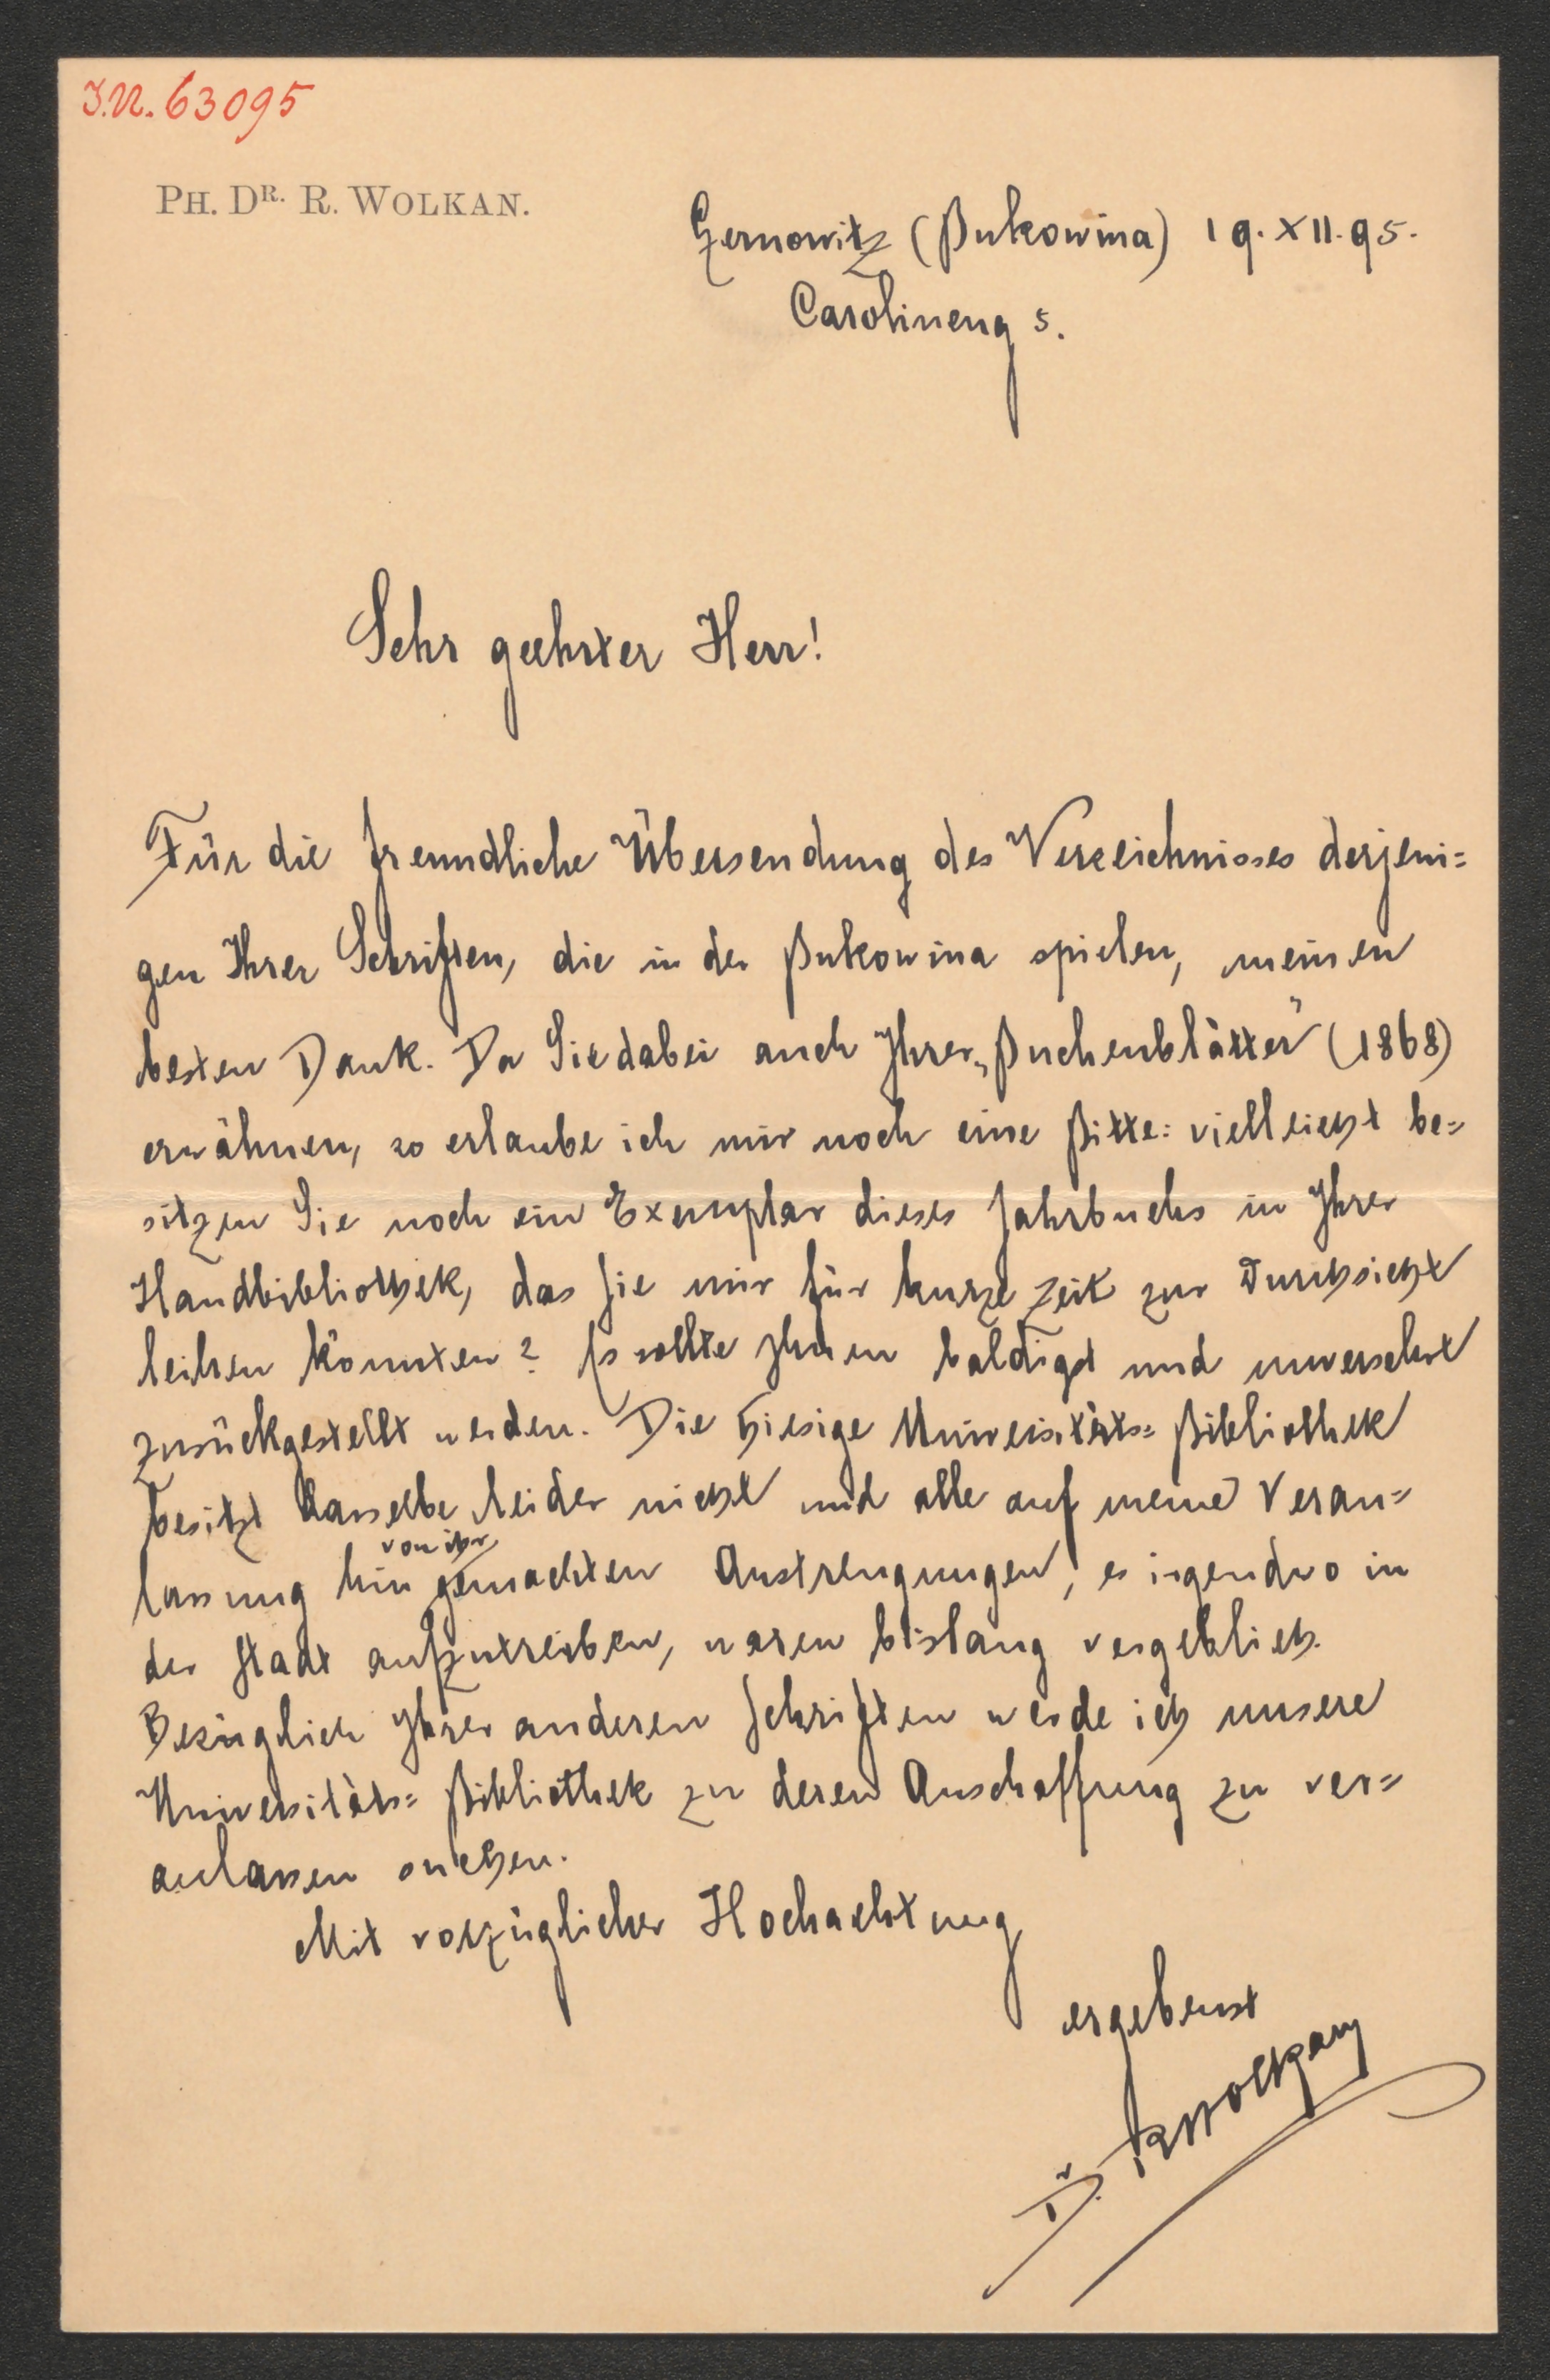 I.N. 63095
PH. DR. R. WOLKAN.
Czernowitz (Bukowina) 19. XII. 95.
Carolineng 5.
Sehr geehrter Herr!
Für die freundliche Übersendung des Verzeichnisses derjeni=
gen Ihrer Schriften, die in der Bukowina spielen, meinen
besten Dank. Da Sie dabei auch Ihrer „Buchenblätter" (1868)
erwähnen, so erlaube ich mir noch eine Bitte: vielleicht be=
sitzen Sie noch ein Exemplar dieses Jahrbuchs in Ihrer
Handbibliothek, das Sie mir für kurze Zeit zur Durchsicht
leihen könnten? Es sollte Ihnen baldigst und unversehrt
zurückgestellt werden. Die hiesige Universitäts=Bibliothek
besitzt dasselbe leider nicht und alle auf meine Veran=
lassung hin von ihr gemachten Anstrengungen, es irgendwo in
der Stadt aufzutreiben, waren bislang vergeblich.
Bezüglich Ihrer anderen Schriften werde ich unsere
Universitäts=Bibliothek zu deren Anschaffung zu ver=
anlassen suchen.
Mit vorzüglicher Hochachtung
ergebenst
Dr. R Wolkan